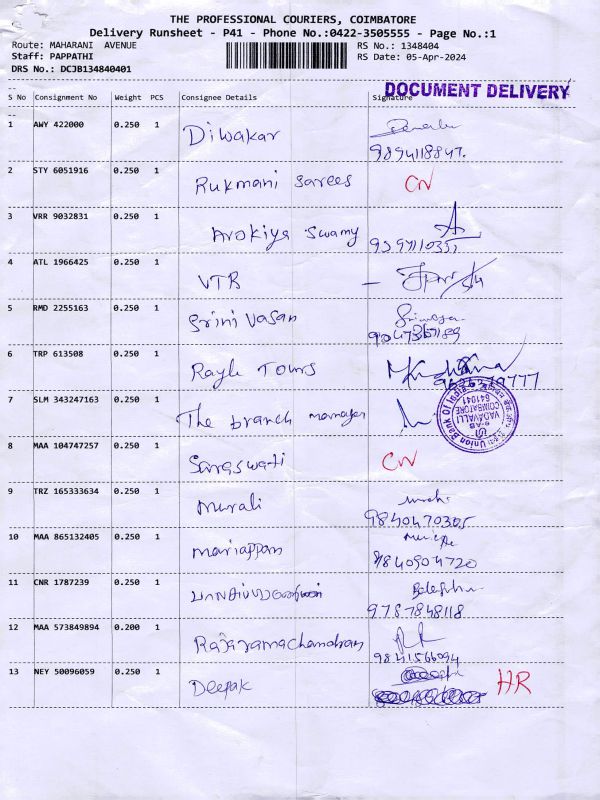 THE PROFESSIONAL COURIERS, COIMBATORE
Delivery Runsheet - P41 - Phone No.:0422-3505555 - Page No.:1
Route: MAHARANI AVENUE RS No.: 1348404
Staff: PAPPATHI RS Date: 05-Apr-2024
DRS No.: DCJB134840401
DOCUMENT DELIVERY
S No Consignment No Weight PCS Consignee Details Signature
1 AWY 422000 0.250 1 Diwakar
9894118847.
2 STY 6051916 0.250 1 Rukmani Sarees CN
3 VRR 9032831 0.250 1 Arokiya Swamy
4 ATL 1966425 0.250 1 VTB
5 RMD 2255163 0.250 1 Srini Vasan
6 TRP 613508 0.250 1 Rayle Tours
7 SLM 343247163 0.250 1 The branch manager
Union Bank Of India
VADAVALLI
COIMBATORE
641041
8 MAA 104747257 0.250 1 Saraswati CN
9 TRZ 165333634 0.250 1 Murali
9840470305
10 MAA 865132405 0.250 1 Mariappan
9840904720
11 CNR 1787239 0.250 1
9787848118
12 MAA 573849894 0.200 1 Rajaramachandran
9841566094
13 NEY 50096059 0.250 1 Deepak HR